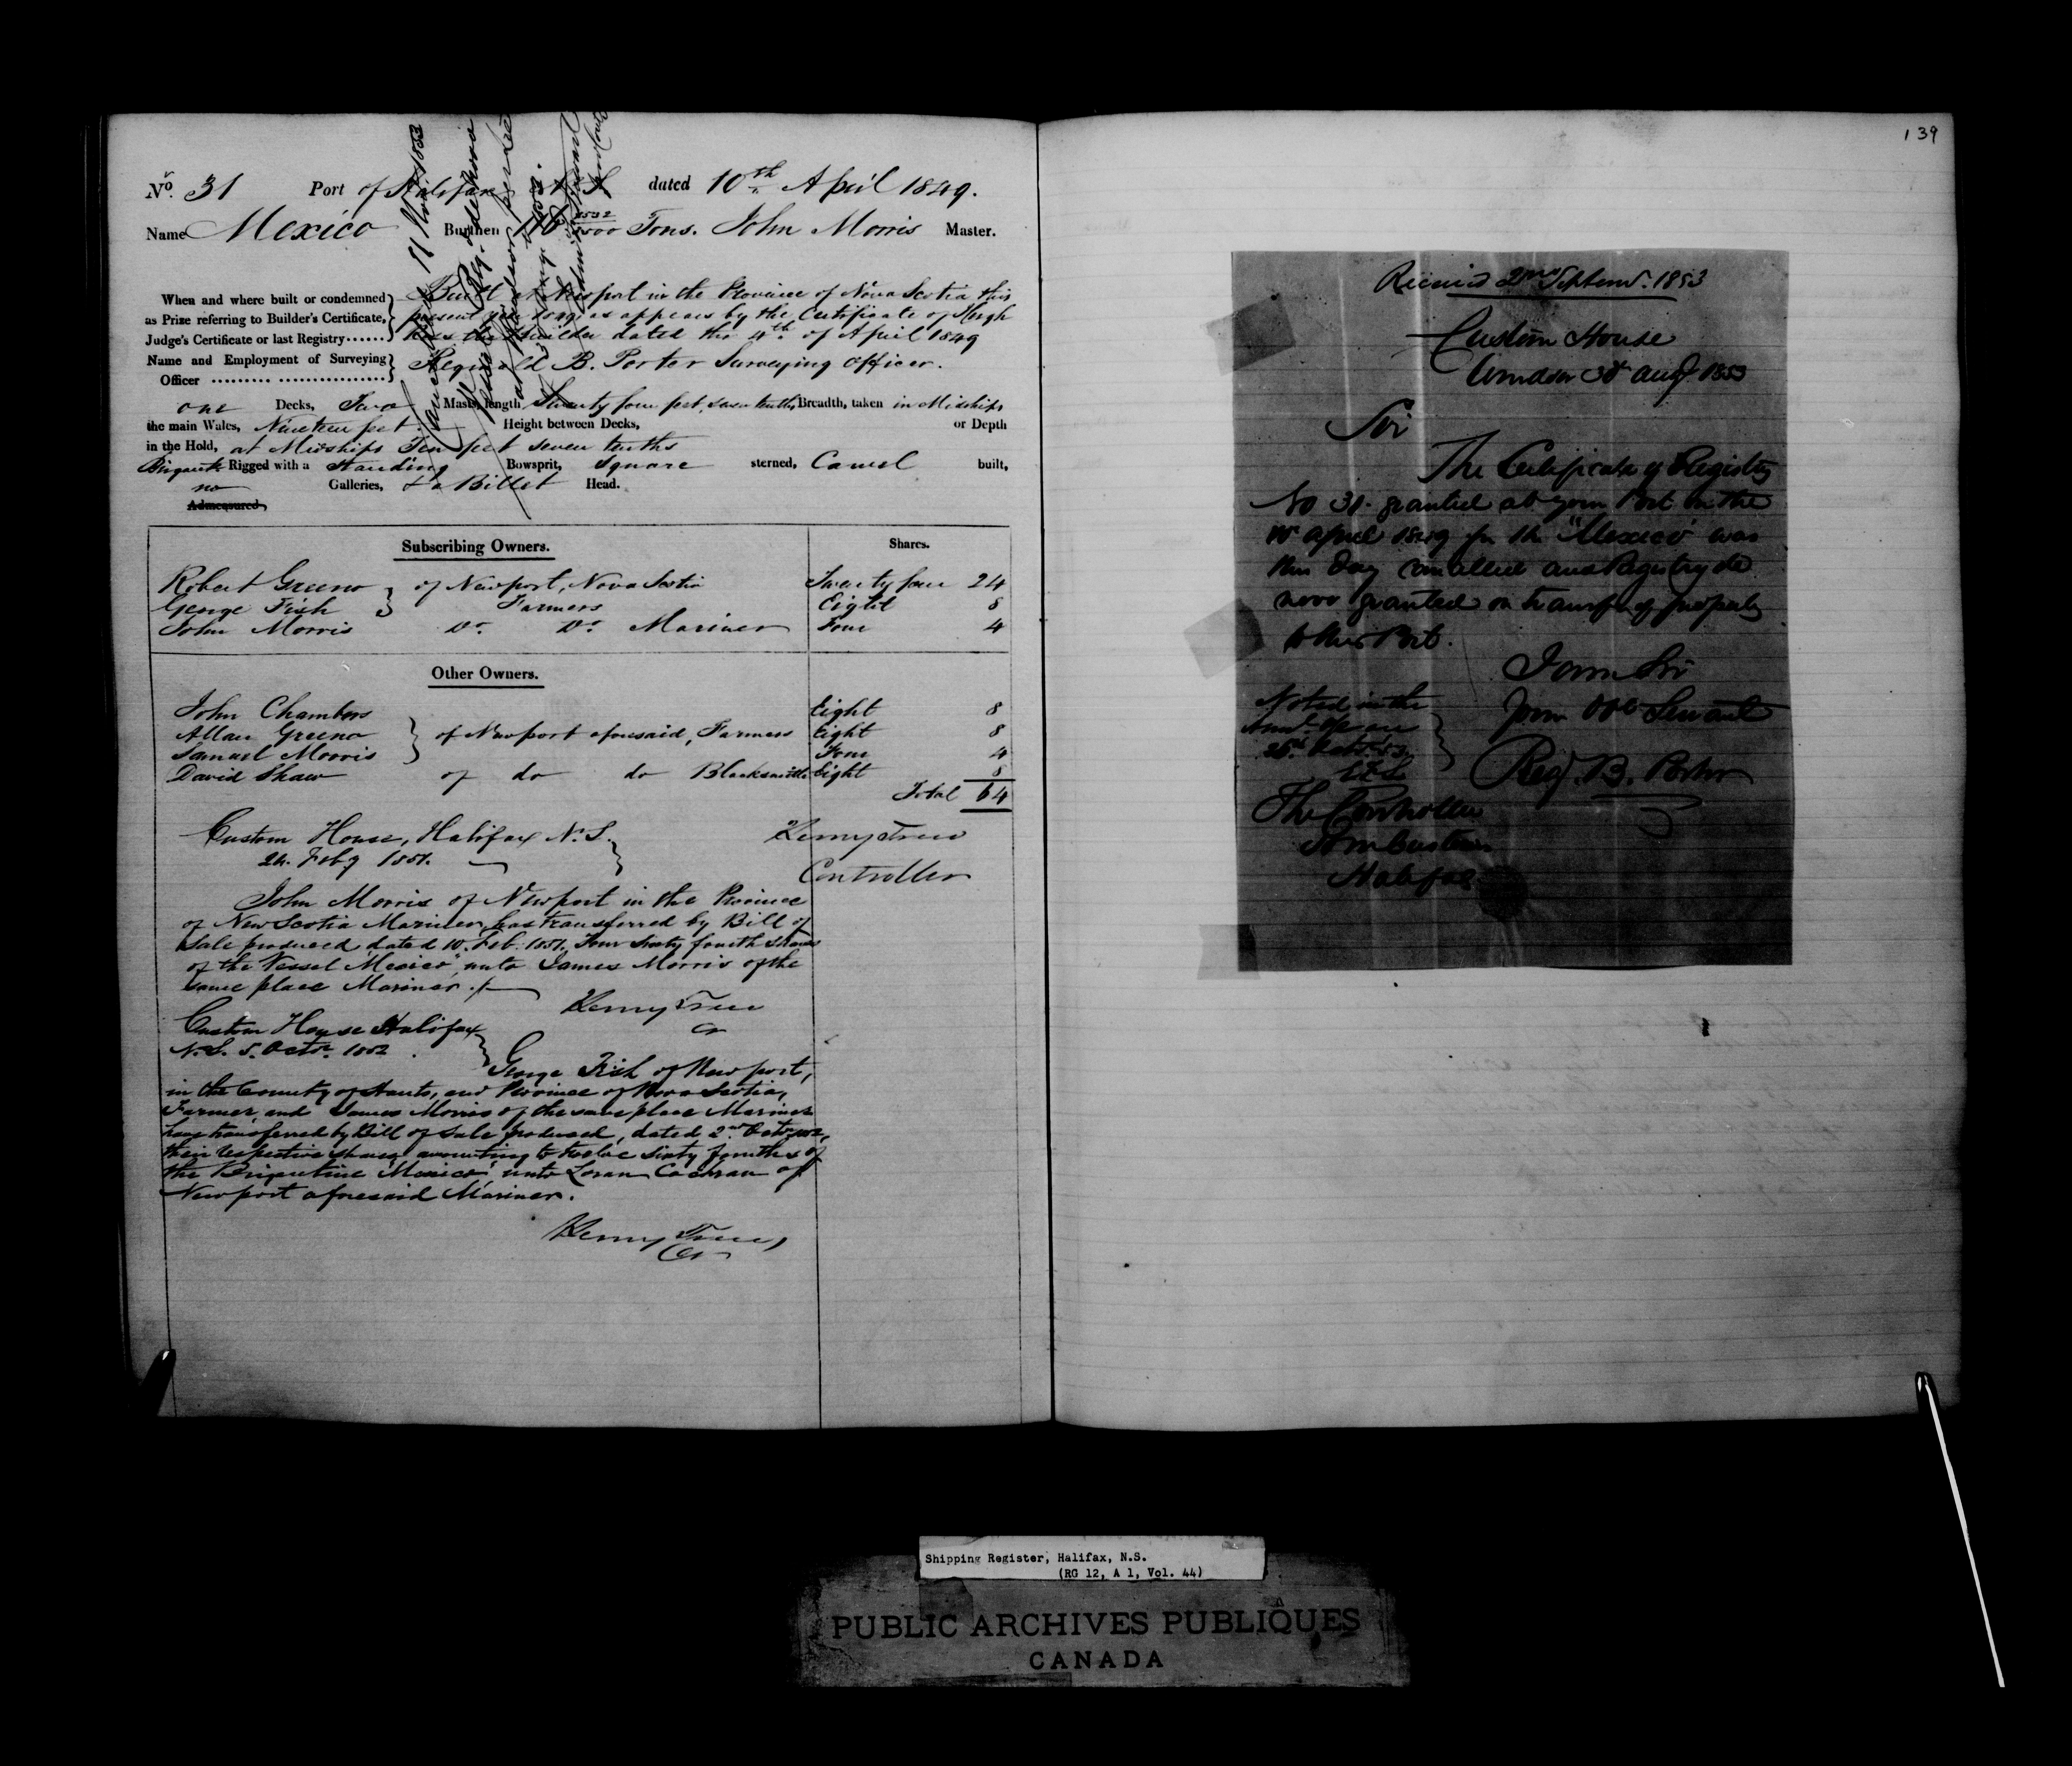 139
No. 31 Port of Halifax N S dated 10th April 1849.
Name Mexico Burthen 116 Tons. John Morris Master.
When and where built or condemned
as Prize referring to Builder's Certificate,
Judge's Certificate or last Registry......
Built at Newport in the Province of Nova Scotia this
present year 1849, as appears by the Certificate of Hugh
the Builder dated the 4th of April 1849
Name and Employment of Surveying
Officer
Reginald B. Porter Surveying Officer.
one Decks, Two Masts, length Seventy four feet, seven tenths, Breadth, taken in Midships
the main Wales, Nineteen feet. Height between Decks, or Depth
in the Hold, at Midships Ten feet seven tenths
Brigante Rigged with a Standing Bowsprit, Square sterned, Carvel built,
no Galleries, & a Billet Head.
Admeasured,
Subscribing Owners. Shares.
Robert Greeno of Newport, Nova Scotia Twenty four 24
George Fish Farmers Eight 8
John Morris Do. Do. Mariner Four 4
Other Owners.
John Chambers Eight 8
Allan Greeno of Newport aforesaid, Farmers Eight 8
Samuel Morris Four 4
David Shaw of do do Blacksmith Eight 8
Total 64
Custom House, Halifax N. S.
24. Feby 1851.
Controller
John Morris of Newport in the Province
of Nova Scotia Mariner, has transferred by Bill of
Sale produced dated 10. Feb: 1851, Four Sixty fourth shares
of the Vessel "Mexico", unto James Morris of the
same place Mariner.
Custom House Halifax
N.S. 5. Octr. 1852
George Fish of Newport,
in the County of Hants, and Province of Nova Scotia,
Farmer, and James Morris of the same place Mariner
have transferred by Bill of Sale produced, dated 2nd Octr 1852,
their respective shares amounting to twelve sixty fourths of
the Brigantine "Mexico", unto Loran Cochran of
Newport aforesaid Mariner.
Received 2nd Septemr. 1853
Custom House
Windsor 30 Augt 1853
Sir
The Certificate of Registry
No 31. granted at your Port on the
10 April 1849 for the "Mexico" was
this day cancelled and Registry de
novo granted on transfer of property
to this Port.
I am Sir
Your Obt Servant
Reg. B. Porter
Noted in the
The Controller
Customs
Halifax
Shipping Register, Halifax, N.S.
(RG 12, A 1, Vol. 44)
PUBLIC ARCHIVES PUBLIQUES
CANADA